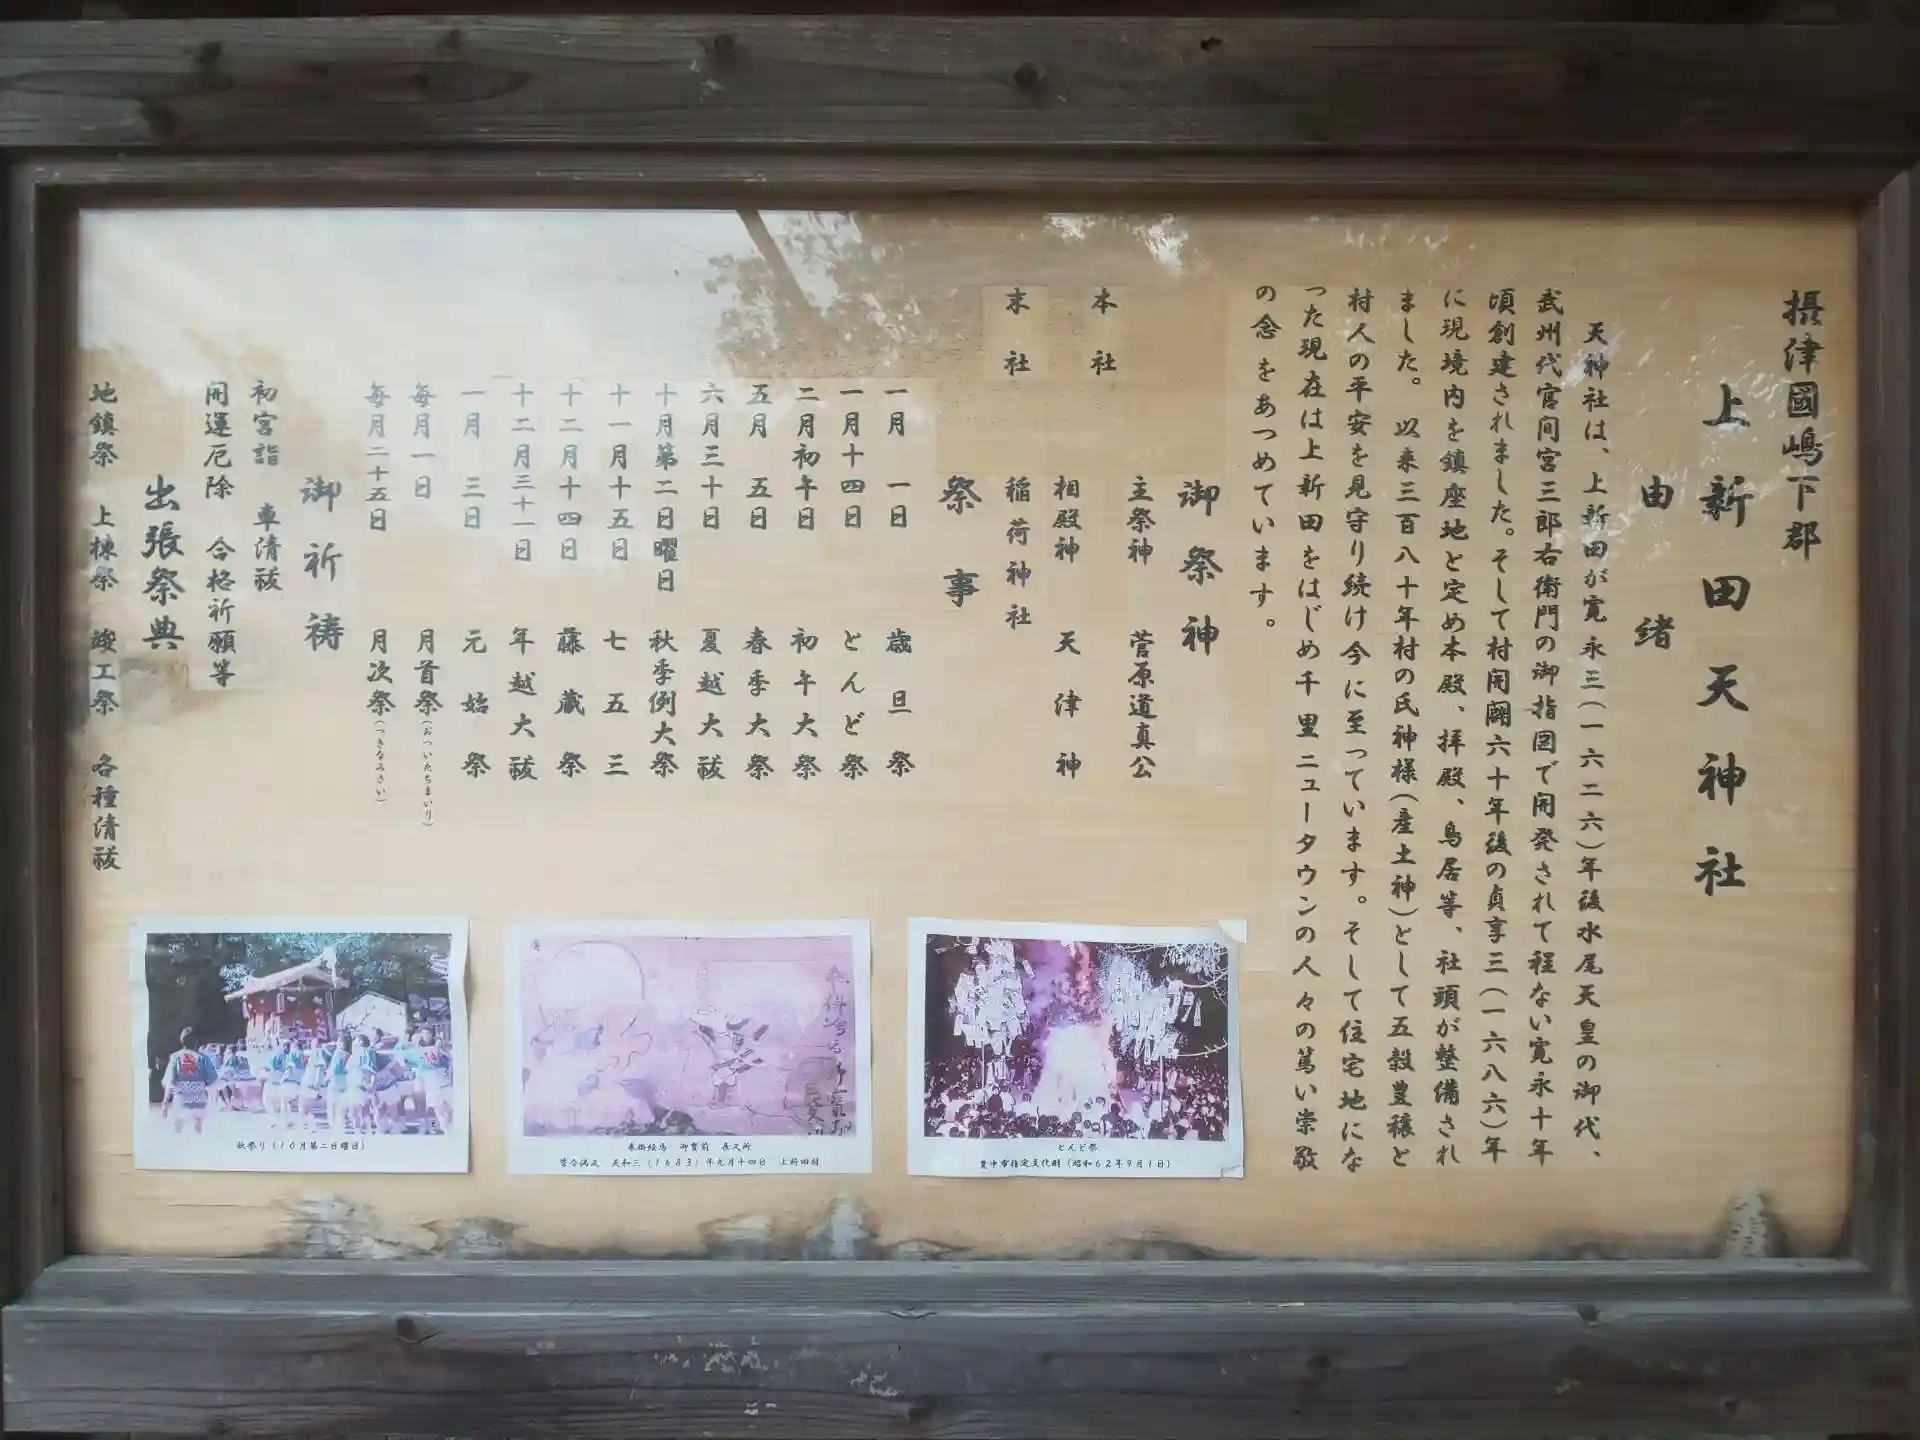 摂津國嶋下郡
上新田天神社
由緒
天神社は、上新田が寛永三(一六二六)年後水尾天皇の御代、
武州代官間宮三郎右衛門の御指図で開発されて程ない寛永十年
頃創建されました。そして村開闢六十年後の貞享三(一六八六)年
に現境内を鎮座地と定め本殿、拝殿、鳥居等、社頭が整備され
ました。以来三百八十年村の氏神様(産土神)として五穀豊穣と
村人の平安を見守り続け今に至っています。そして住宅地にな
った現在は上新田をはじめ千里ニュータウンの人々の篤い崇敬
の念をあつめています。
御祭神
本社 主祭神 菅原道真公
相殿神 天津神
末社 稲荷神社
祭事
一月一日 歳旦祭
一月十四日 とんど祭
二月初午日 初午大祭
五月五日 春季大祭
六月三十日 夏越大祓
十月第二日曜日 秋季例大祭
十一月十五日 七五三
十二月十四日 藤蔵祭
十二月三十一日 年越大祓
一月三日 元始祭
毎月一日 月首祭(おついたちまいり)
毎月二十五日 月次祭(つきなみさい)
御祈祷
初宮詣 車清祓
開運厄除 合格祈願等
出張祭典
地鎮祭 上棟祭 竣工祭 各種清祓
とんど祭
豊中市指定文化財(昭和62年9月1日)
奉掛絵馬 御寳前 長久所
皆令満足 天和三(1683)年九月十四日 上新田村
秋祭り(10月第二日曜日)